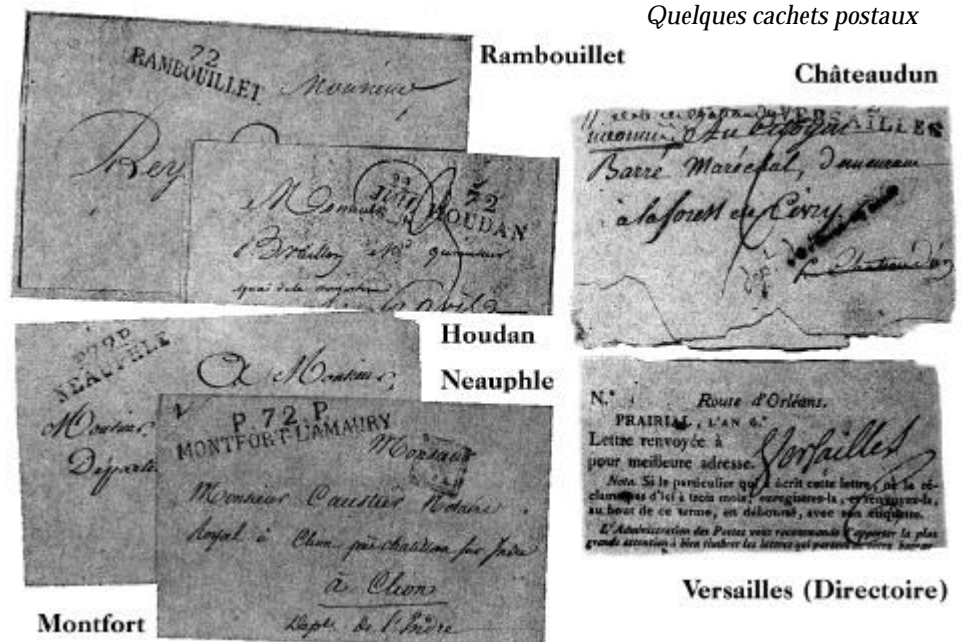 Quelques cachets postaux
Rambouillet
72
RAMBOUILLET Monsieur
Rey
23
JUIN
72
HOUDAN
Houdan
Neauphle
P72P
NEAUPHLE
A Monsieur
Monsieur
Départe
P. 72. P.
MONTFORT-L'AMAURY
Monsieur
Monsieur Caustier Notaire
Royal à Clion près chatillon sur Indre
à Clion
Dépt de l'Indre
Montfort
Châteaudun
VERSAILLES
inconnu Au Citoyen
Barré Maréchal, demeurant
à la forest de Civry
Chateaudun
N.°
Route d'Orléans.
PRAIRIAL, L'AN 6.e
Lettre renvoyée à
pour meilleure adresse. Versailles
Nota. Si le particulier qui a écrit cette lettre, ne la ré-
clame pas d'ici à trois mois, enregistrez-la, et renvoyez-la,
au bout de ce terme, en débours, avec son étiquette.
L'Administration des Postes vous recommande d'apporter la plus
grande attention à bien timbrer les lettres qui partent de votre bureau
Versailles (Directoire)